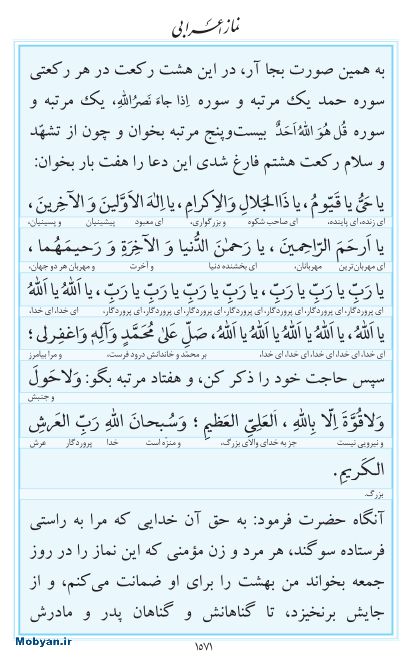 نماز اعرابی
به همین صورت بجا آر، در این هشت رکعت در هر رکعتی
سوره حمد یک مرتبه و سوره اِذا جاءَ نَصرُ اللهِ، یک مرتبه و
سوره قُل هُوَ اللهُ اَحَدٌ بیست‌وپنج مرتبه بخوان و چون از تشهّد
و سلام رکعت هشتم فارغ شدی این دعا را هفت بار بخوان:
یا حَیُّ یا قَیّومُ، یا ذَا الجَلالِ وَالاِکرامِ، یا اِلهَ الاَوَّلینَ وَ الآخِرینَ،
ای زنده، ای پاینده، ای صاحب شکوه و بزرگواری، ای معبود پیشینیان و پسینیان،
یا اَرحَمَ الرّاحِمینَ، یا رَحمٰنَ الدُّنیا وَ الآخِرَةِ وَ رَحیمَهُما،
ای مهربان‌ترین مهربانان، ای بخشنده دنیا و آخرت و مهربان هر دو جهان،
یا رَبِّ یا رَبِّ یا رَبِّ، یا رَبِّ یا رَبِّ یا رَبِّ یا رَبِّ، یا اَللهُ یا اَللهُ
ای پروردگار، ای پروردگار، ای پروردگار، ای پروردگار، ای پروردگار، ای پروردگار، ای پروردگار، ای خدا، ای خدا،
یا اَللهُ، یا اَللهُ یا اَللهُ یا اَللهُ یا اَللهُ، صَلِّ عَلیٰ مُحَمَّدٍ وَآلِهِ وَاغفِرلی؛
ای خدا، ای خدا، ای خدا، ای خدا، ای خدا، بر محمّد و خاندانش درود فرست، و مرا بیامرز
سپس حاجت خود را ذکر کن، و هفتاد مرتبه بگو: وَلاحَولَ
و جنبش
وَلاقُوَّةَ اِلّا بِاللهِ، اَلعَلِیِّ العَظیمِ؛ وَسُبحانَ اللهِ رَبِّ العَرشِ
و نیرویی نیست جز به خدای والای بزرگ، و منزّه است خدا پروردگار عرش
الکَریمِ.
بزرگ.
آنگاه حضرت فرمود: به حق آن خدایی که مرا به راستی
فرستاده سوگند، هر مرد و زن مؤمنی که این نماز را در روز
جمعه بخواند من بهشت را برای او ضمانت می‌کنم، و از
جایش برنخیزد، تا گناهانش و گناهان پدر و مادرش
۱۵۷۱
Mobyan.ir